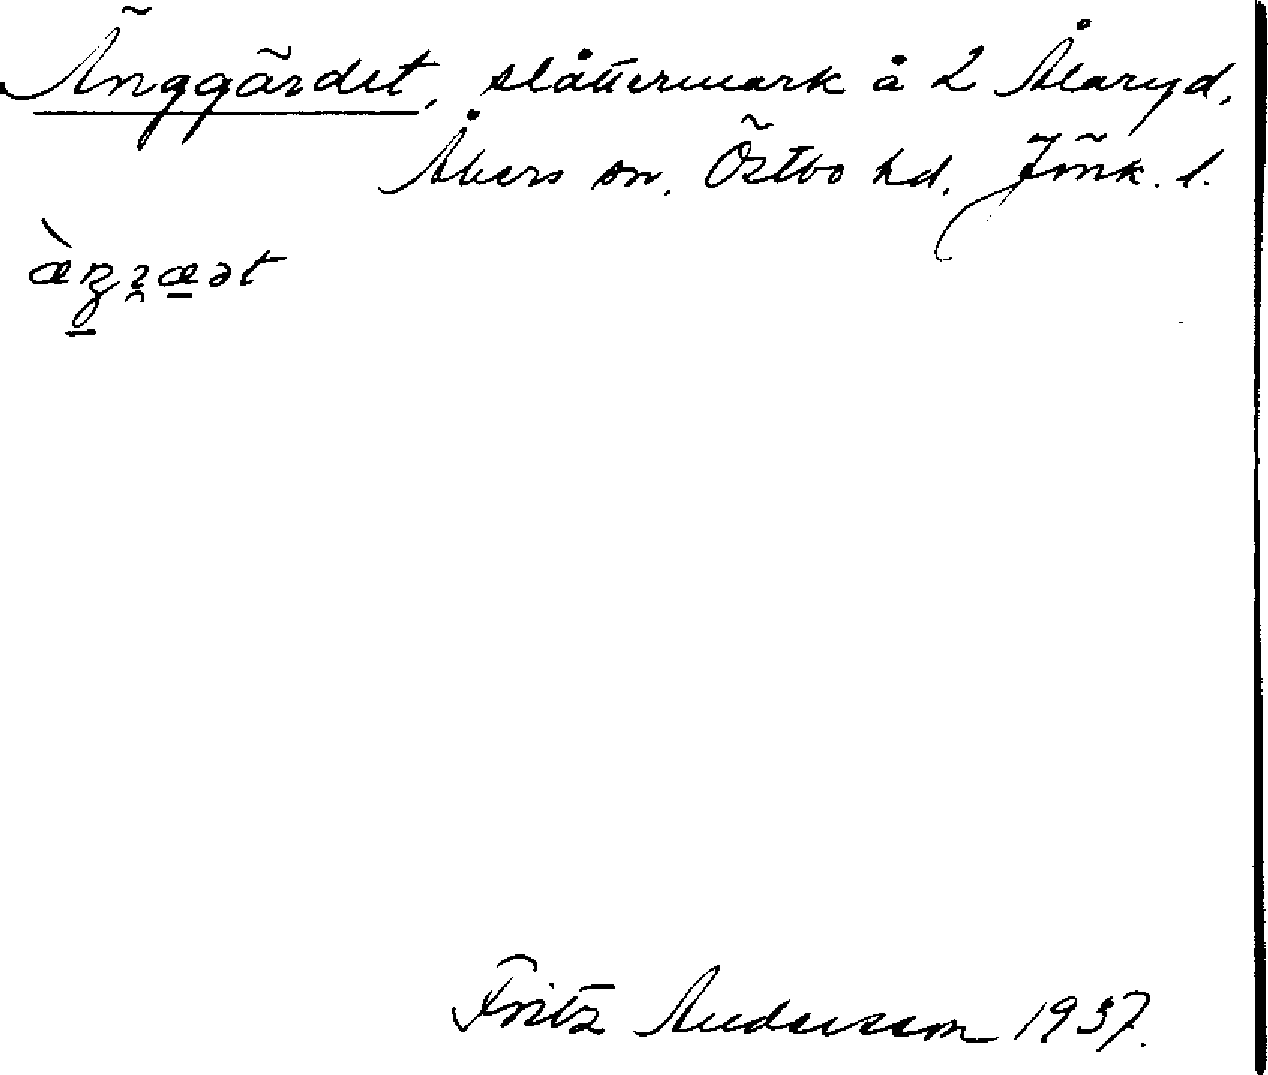 Änggärdet, slåttermark å 2 Ålaryd,
Åkers sn, Östbo hd, Jönk. l.
Fritz Andersson 1937.